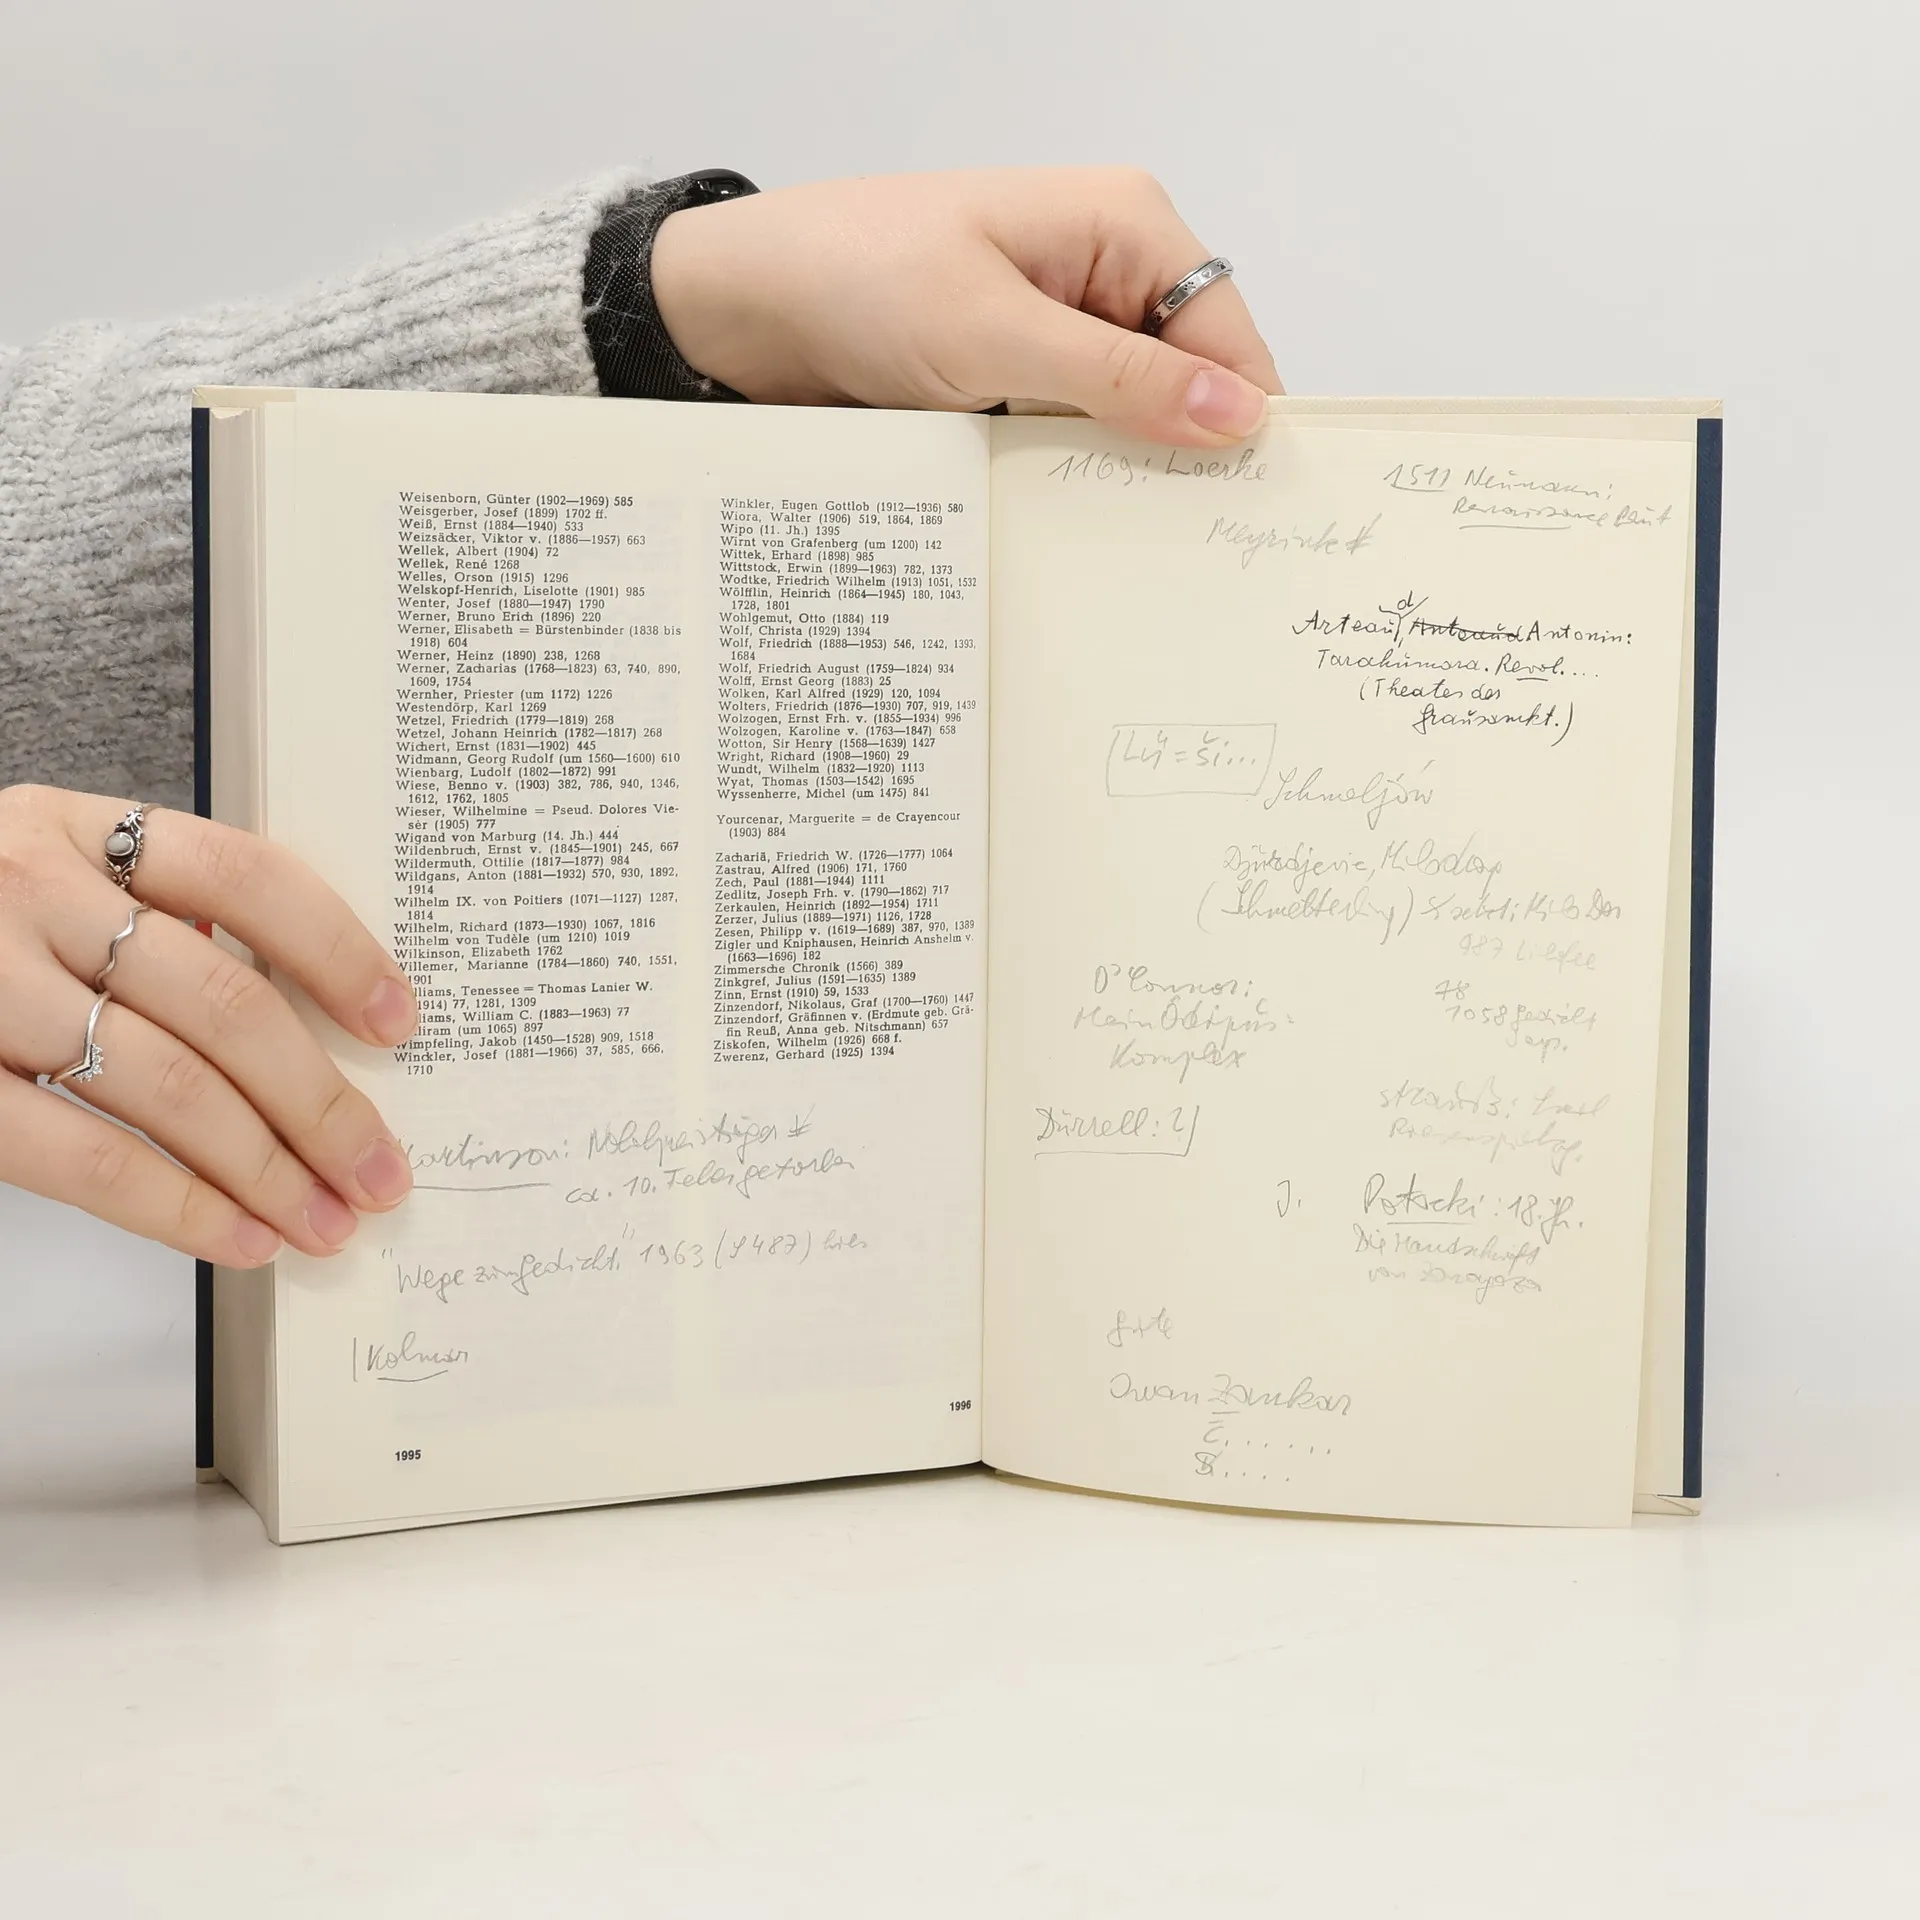 Weisenborn, Günter (1902—1969) 585
Weisgerber, Josef (1899) 1702 ff.
Weiß, Ernst (1884—1940) 533
Weizsäcker, Viktor v. (1886—1957) 663
Wellek, Albert (1904) 72
Wellek, René 1268
Welles, Orson (1915) 1296
Welskopf-Henrich, Liselotte (1901) 985
Wenter, Josef (1880—1947) 1790
Werner, Bruno Erich (1896) 220
Werner, Elisabeth = Bürstenbinder (1838 bis
1918) 604
Werner, Heinz (1890) 238, 1268
Werner, Zacharias (1768—1823) 63, 740, 890,
1609, 1754
Wernher, Priester (um 1172) 1226
Westendörp, Karl 1269
Wetzel, Friedrich (1779—1819) 268
Wetzel, Johann Heinrich (1782—1817) 268
Wichert, Ernst (1831—1902) 445
Widmann, Georg Rudolf (um 1560—1600) 610
Wienbarg, Ludolf (1802—1872) 991
Wiese, Benno v. (1903) 382, 786, 940, 1346,
1612, 1762, 1805
Wieser, Wilhelmine = Pseud. Dolores Vie-
sèr (1905) 777
Wigand von Marburg (14. Jh.) 444
Wildenbruch, Ernst v. (1845—1901) 245, 667
Wildermuth, Ottilie (1817—1877) 984
Wildgans, Anton (1881—1932) 570, 930, 1892,
1914
Wilhelm IX. von Poitiers (1071—1127) 1287,
1814
Wilhelm, Richard (1873—1930) 1067, 1816
Wilhelm von Tudèle (um 1210) 1019
Wilkinson, Elizabeth 1762
Willemer, Marianne (1784—1860) 740, 1551,
1901
lliams, Tenessee = Thomas Lanier W.
1914) 77, 1281, 1309
liams, William C. (1883—1963) 77
liram (um 1065) 897
Wimpfeling, Jakob (1450—1528) 909, 1518
Winckler, Josef (1881—1966) 37, 585, 666,
1710
Winkler, Eugen Gottlob (1912—1936) 580
Wiora, Walter (1906) 519, 1864, 1869
Wipo (11. Jh.) 1395
Wirnt von Grafenberg (um 1200) 142
Wittek, Erhard (1898) 985
Wittstock, Erwin (1899—1963) 782, 1373
Wodtke, Friedrich Wilhelm (1913) 1051, 1532
Wölfflin, Heinrich (1864—1945) 180, 1043,
1728, 1801
Wohlgemut, Otto (1884) 119
Wolf, Christa (1929) 1394
Wolf, Friedrich (1888—1953) 546, 1242, 1393,
1684
Wolf, Friedrich August (1759—1824) 934
Wolff, Ernst Georg (1883) 25
Wolken, Karl Alfred (1929) 120, 1094
Wolters, Friedrich (1876—1930) 707, 919, 1439
Wolzogen, Ernst Frh. v. (1855—1934) 996
Wolzogen, Karoline v. (1763—1847) 658
Wotton, Sir Henry (1568—1639) 1427
Wright, Richard (1908—1960) 29
Wundt, Wilhelm (1832—1920) 1113
Wyat, Thomas (1503—1542) 1695
Wyssenherre, Michel (um 1475) 841
Yourcenar, Marguerite = de Crayencour
(1903) 884
Zachariä, Friedrich W. (1726—1777) 1064
Zastrau, Alfred (1906) 171, 1760
Zech, Paul (1881—1944) 1111
Zedlitz, Joseph Frh. v. (1790—1862) 717
Zerkaulen, Heinrich (1892—1954) 1711
Zerzer, Julius (1889—1971) 1126, 1728
Zesen, Philipp v. (1619—1689) 387, 970, 1389
Zigler und Kniphausen, Heinrich Anshelm v.
(1663—1696) 182
Zimmersche Chronik (1566) 389
Zinkgref, Julius (1591—1635) 1389
Zinn, Ernst (1910) 59, 1533
Zinzendorf, Nikolaus, Graf (1700—1760) 1447
Zinzendorf, Gräfinnen v. (Erdmute geb. Grä-
fin Reuß, Anna geb. Nitschmann) 657
Ziskofen, Wilhelm (1926) 668 f.
Zwerenz, Gerhard (1925) 1394
artinson: Nobelpreisträger
ca. 10. Feber gestorben
"Wege zum Gedicht." 1963 (S 487)
Kolmar
1995
1996
1169: Loerke
1511 Neumann:
Renaissance
Meyrink
Arteaud, Antonin:
Tarahumara. Revol. ...
(Theater der
Grausamkt.)
Lü = Ši...
Schmeljów
(Schmetterling)
O'Connor:
Mein Ödipus-
Komplex
1058 Gedicht
Durrell: 2
Strauß: Karl
J. Potocki: 18. Jh.
Die Handschrift
von Zaragoza
Iwan Zankar